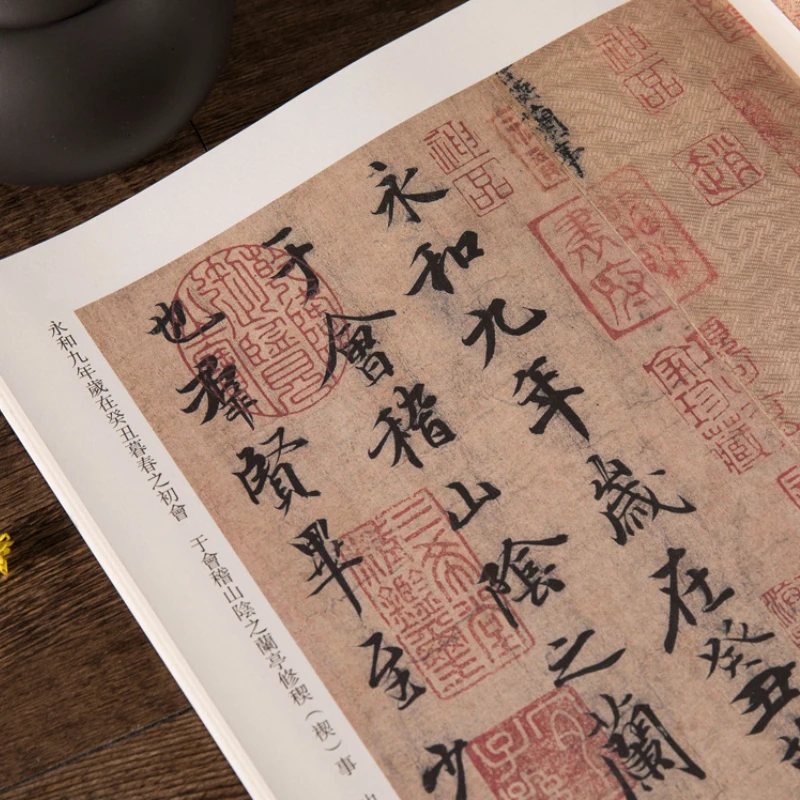 神品
趙
蘭亭
神品
永和九年歲在癸丑
于會稽山陰之蘭
也羣賢畢至少
三希堂精鑑璽
永和九年歲在癸丑暮春之初會　于會稽山陰之蘭亭修稧（禊）事